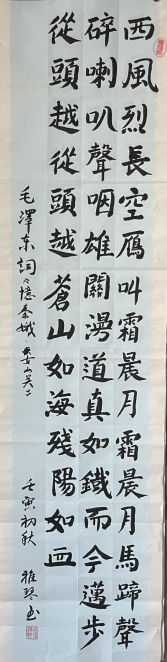 西風烈長空雁叫霜晨月霜晨月馬蹄聲
碎喇叭聲咽雄關漫道真如鐵而今邁步
從頭越從頭越蒼山如海殘陽如血
毛澤東詞憶秦娥·婁山关
壬寅初秋 雅琴书